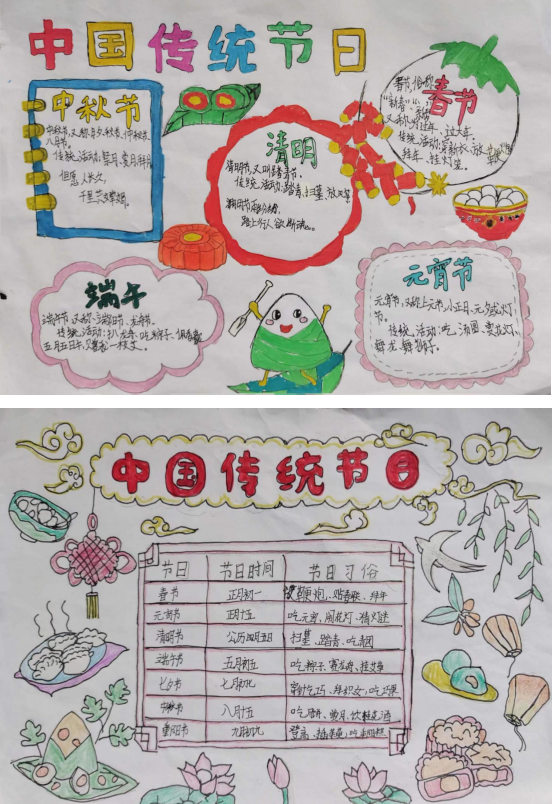 中国传统节日
中秋节
中秋节,又称月夕,秋节、仲秋节、
八月节。
传统活动:赏月、
但愿人长久,
千里共婵娟。
清明
清明节,又叫踏青节。
传统活动:踏青、扫墓、放风筝
清明时节雨纷纷,
路上行人欲断魂。
春节
春节,俗称
"新春"
又称为过年、过大年。
传统活动:穿新衣、
拜年、挂灯笼。
端午
端午节,又称:端阳节、龙舟节。
传统活动:扒龙舟、吃粽子、佩香囊
五月五日午,
元宵节
元宵节,又称上元节,小正月、元夕或灯
节。
传统活动:吃汤圆、赏花灯、
舞龙、舞狮子。
中国传统节日
节日 节日时间 节日习俗
春节 正月初一 放鞭炮、贴春联、拜年
元宵节 正月十五 吃元宵、闹花灯、猜灯谜
清明节 公历四月五日 扫墓、踏青、
端午节 五月初五 吃粽子、赛龙舟、挂艾草
七夕节 七月初七 穿针乞巧、拜织女、吃巧果
中秋节 八月十五 吃月饼、赏月、饮桂花酒
重阳节 九月初九 登高、插茱萸、吃重阳糕